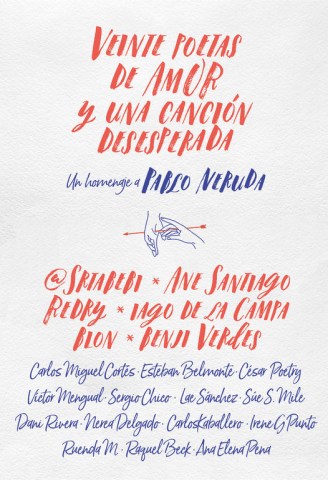 VEINTE POETAS
DE AMOR
y UNA CANCIÓN
DESESPERADA
Un homenaje a PABLO NERUDA
@SRTABEBI * ANE SANTIAGO
REDRY * IAGO DE LA CAMPA
DLON * BENJI VERDES
Carlos Miguel Cortés · Esteban Belmonte · César Poetry
Víctor Mengual · Sergio Chico · Lae Sánchez · Sue S. Mile
Dani Rivera · Nerea Delgado · CarlosKaballero · Irene G Punto
Ruenda M. · Raquel Beck · Ana Elena Pena